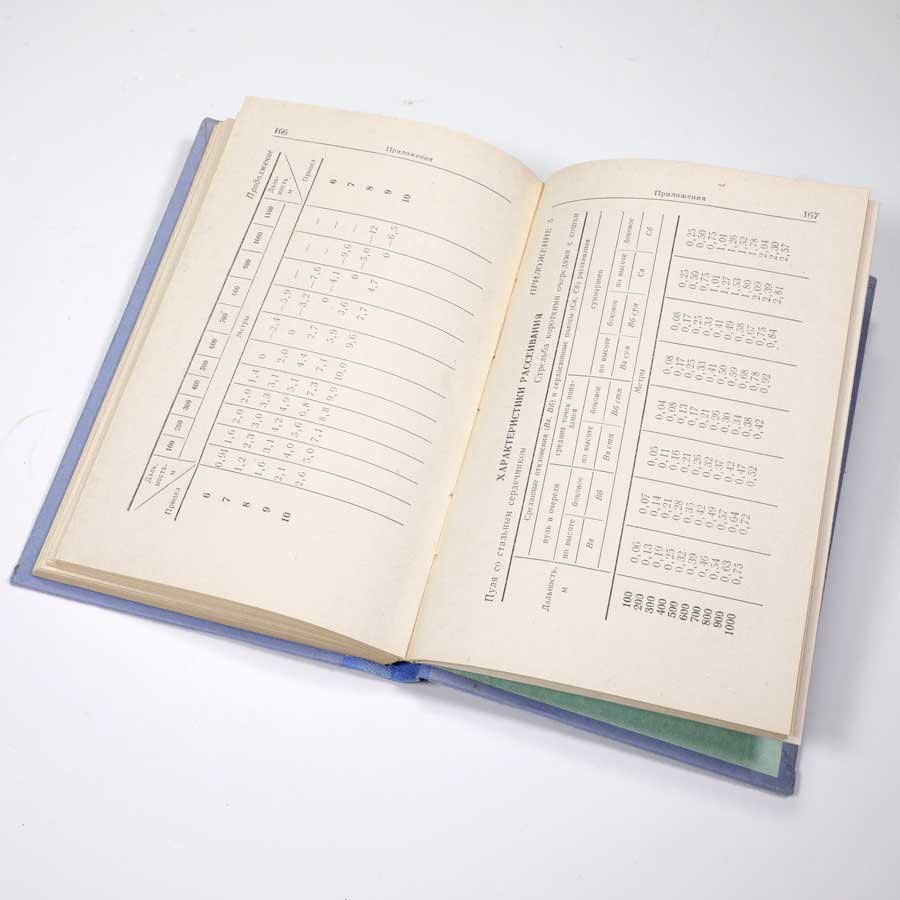 166
Приложения
Продолжение
Дальность, м
Прицел
100 200 300 400 500 600 700 800 900 1000 1100
Дальность м
Прицел
Метры
6 0,91 1,6 2,0 2,0 1,4 0 −2,4 −5,9 — — — 6
7 1,2 2,3 3,0 3,3 3,1 2,0 0 −3,2 −7,6 — — 7
8 1,6 3,1 4,2 4,9 5,1 4,4 2,7 0 −4,1 −9,6 — 8
9 2,1 4,0 5,6 6,8 7,3 7,1 5,9 3,6 0 −5,0 −12 9
10 2,6 5,0 7,1 8,8 9,9 10,0 9,6 7,7 4,7 0 −6,5 10
Приложения
167
ПРИЛОЖЕНИЕ 5
ХАРАКТЕРИСТИКИ РАССЕИВАНИЯ
Пуля со стальным сердечником Стрельба короткими очередями с сошки
Дальность, м
Срединные отклонения (Вв, Вб) и сердцевинные полосы (Св, Сб) рассеивания
пуль в очереди
средних точек попадания
суммарного
по высоте боковое по высоте боковое по высоте боковое по высоте боковое
Вв Вб Вв стп Вб стп Вв сул Вб сул Св Сб
Метры
100 0,06 0,07 0,05 0,04 0,08 0,08 0,25 0,25
200 0,13 0,14 0,11 0,08 0,17 0,17 0,50 0,50
300 0,19 0,21 0,16 0,13 0,25 0,25 0,75 0,75
400 0,25 0,28 0,21 0,17 0,33 0,33 1,01 1,01
500 0,32 0,35 0,26 0,21 0,41 0,41 1,27 1,26
600 0,39 0,42 0,32 0,26 0,50 0,49 1,53 1,52
700 0,46 0,49 0,37 0,30 0,59 0,58 1,80 1,78
800 0,54 0,57 0,42 0,34 0,68 0,67 2,09 2,04
900 0,63 0,64 0,47 0,38 0,78 0,75 2,39 2,30
1000 0,75 0,72 0,52 0,42 0,92 0,84 2,81 2,57